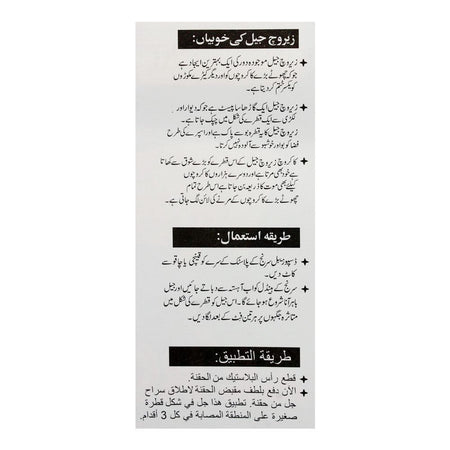 زیروچ جیل کی خوبیاں:
زیروچ جیل موجودہ دور کی ایک بہترین ایجاد ہے
جو کہ چھوٹے بڑے کاکروچوں کو اور دیگر کیڑے مکوڑوں
کو یکسر ختم کر دیتا ہے۔
زیروچ جیل ایک گاڑھا سا پیسٹ ہے جو کہ دیوار اور
لکڑی سے ایک قطرے کی شکل میں چپک جاتا ہے۔
زیروچ جیل کا یہ قطرہ بو سے پاک ہے اور اسپرے کی طرح
فضا کو بو اور خوشبو سے آلودہ نہیں کرتا۔
کاکروچ زیروچ جیل کے اس قطرے کو بڑے شوق سے کھاتا
ہے خود بھی مرتا ہے اور دوسرے ہزاروں کاکروچوں
کیلئے بھی موت کا ذریعہ بن جاتا ہے اس طرح تمام
چھوٹے بڑے کاکروچوں کے مرنے کی لائن لگ جاتی ہے۔
طریقہ استعمال:
ڈسپوزیبل سرنج کے پلاسٹک کے سرے کو قینچی یا چاقو سے
کاٹ دیں۔
سرنج کے ہینڈل کو اب آہستہ سے دباتے جائیں اور جیل
باہر آنا شروع ہو جائے گا۔ اس جیل کو قطرے کی شکل میں
متاثرہ جگہوں پر ہر تین فٹ کے بعد لگا دیں۔
طريقة التطبيق:
قطع رأس البلاستيك من الحقنة.
الآن دفع بلطف مقبض الحقنة لاطلاق سراح
جل من حقنة. تطبيق هذا جل في شكل قطرة
صغيرة على المنطقة المصابة في كل 3 أقدام.